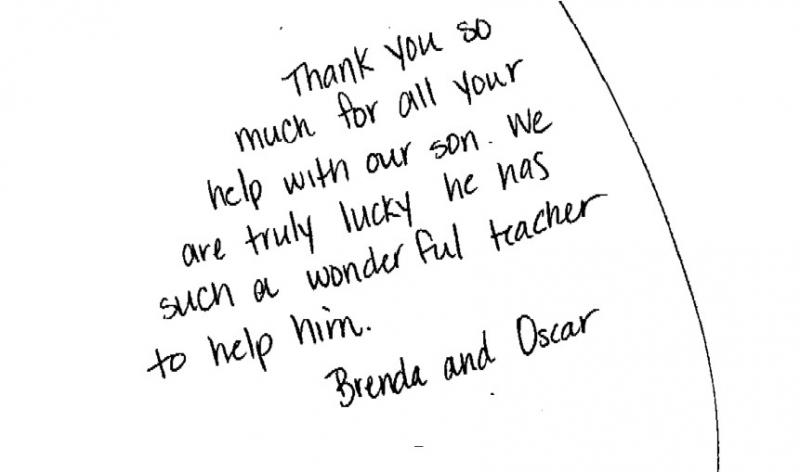 Thank you so
much for all your
help with our son. We
are truly lucky he has
such a wonderful teacher
to help him.
Brenda and Oscar